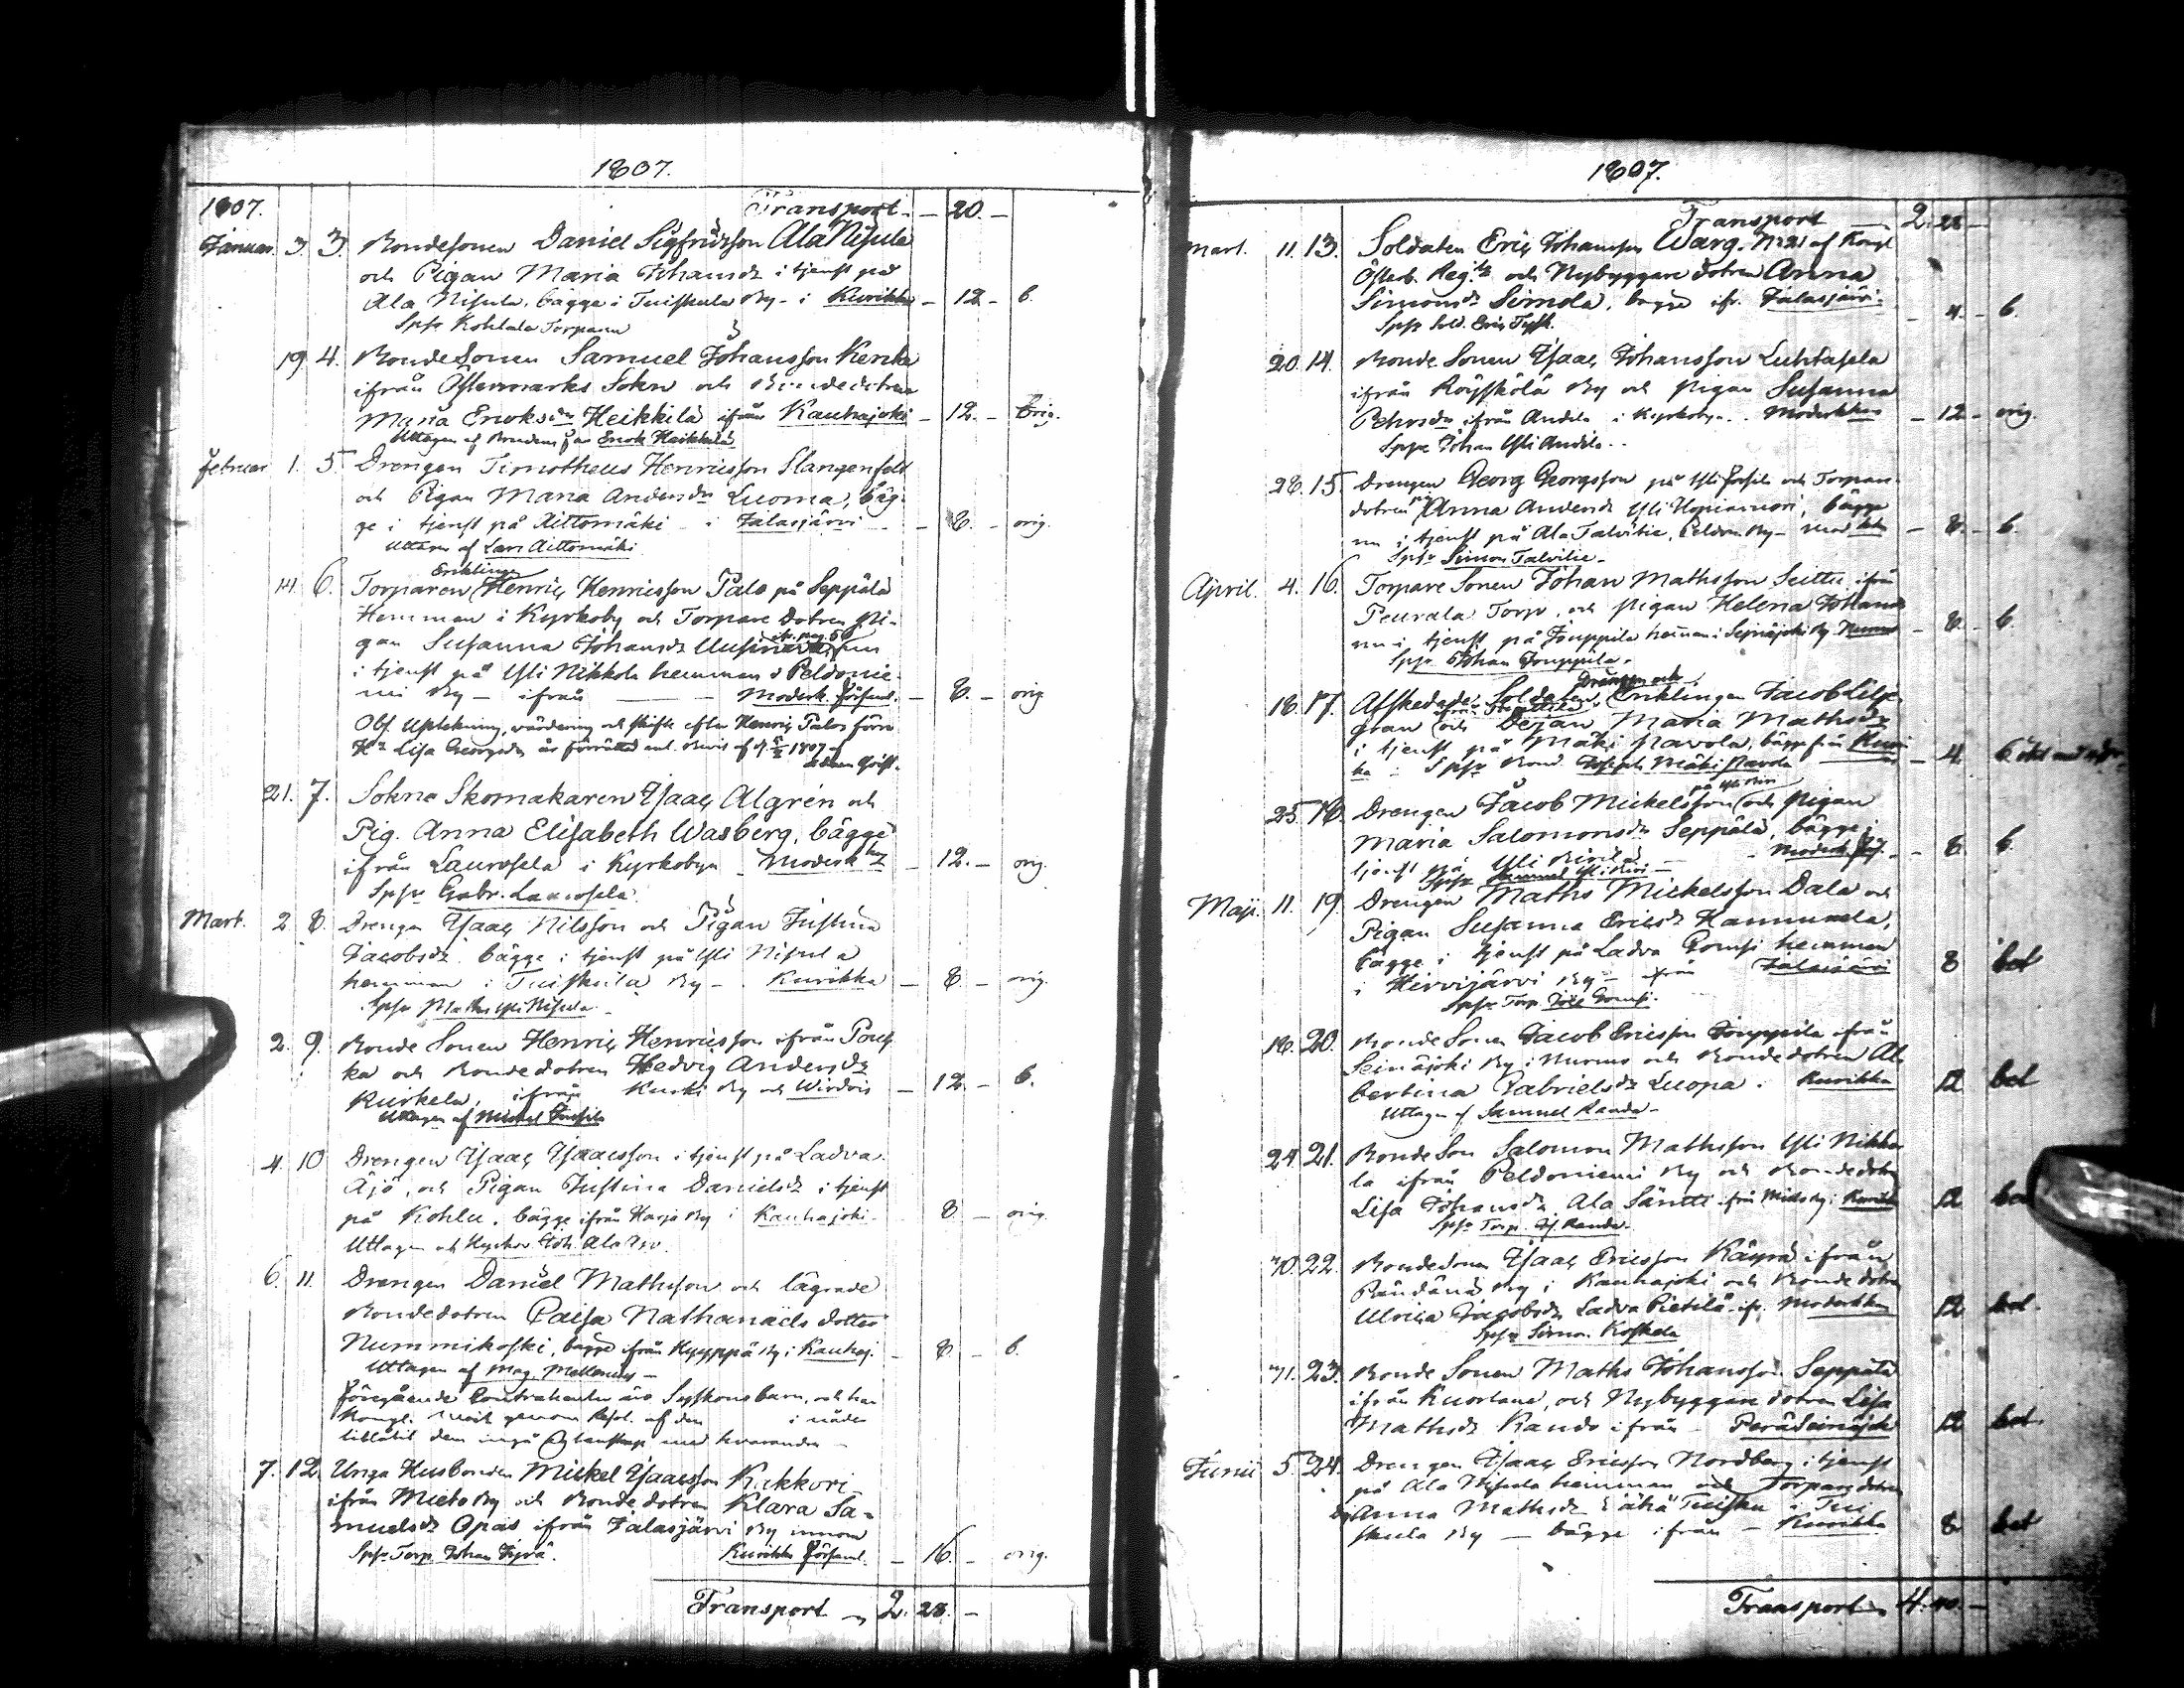 1807.
1807. Transport — 20. —
Januar. 3. 3. Bondesonen Daniel Sigfridsson Ala Nisula
och Pigan Maria Johansdr i tjenst på
Ala Nisula, bägge i Tuiskula By - i Kurikka — 12. — b.
Spsr Kohlala Torparen
19. 4. Bonde Sonen Samuel Johansson Kenka
ifrån Östermarks Sokn och Bondedotren
Maria Enoksdr Heikkilä ifrån Kauhajoki — 12. — orig.
Uttagen af Brudens far Enok Heikkilä
Februar 1. 5. Drengen Timotheus Henricsson Slangenfelt
och Pigan Maria Andersdr Luoma, bäg-
ge i tjenst på Aittomäki - i Jalasjärvi — 8. — orig.
Uttagen af Lars Aittomäki
Enklinge
14. 6. Torparen Henric Henricsson Talo på Seppälä
Hemman i Kyrkoby och Torpare Dotren Pi-
gan Susanna Johansdr
i tjenst på Yli Nikkola hemman i Peldonie-
mi By — ifrån — Moderk. Församl. — 8. — orig
Obs. Upteckning, värdering och skifte efter Henric Talos förra
Hu Lisa Georgsdr är förrättad enl. Bevis af
21. 7. Sokne Skomakaren Isaac Algren och
Pig. Anna Elisabeth Wasberg, bägge
ifrån Laurosela i Kyrkobyn Moderk — 12. — orig.
Spsr Gabr. Laurosela.
Mart. 2. 8. Drengen Isaac Nilsson och Pigan Justina
Jacobsdr. bägge i tjenst på Yli Nisula
hemman i Tuiskula By - Kurikka — 8. — orig.
Spsr Maths Yli Nisula
2. 9. Bonde Sonen Henric Henricsson ifrån Pouk
ka och Bondedotren Hedvig Andersdr
Kurkela, ifrån Kurki By och Wirdois — 12. — b.
Uttagen af Mickel
4. 10 Drengen Isaac Isaacsson i tjenst på Ladva
Äjö, och Pigan Justina Danielsdr i tjenst
på Kohlu, bägge ifrån Harja By i Kauhajoki. 8. — orig.
Uttagen af Joh. Ala
6. 11. Drengen Daniel Mathsson och lägrade
Bondedotren Caisa Nathanaels dotter
Nummikoski, bägge ifrån Hyyppä By i Kauhaj. — 8. — b.
Uttagen af Mag. Mellenius —
Föregående Contrahenter äro Syskonebarn, och har
Kongl. Maj:t genom Resol. af den i nåder
tillåtit dem ingå Ägtenskap med hvarandra —
7. 12. Unga Husbonden Mickel Isaacsson Kukkori
ifrån Mieto By och Bonde dotren Klara Sa-
muelsdr Opas ifrån Jalasjärvi By innom
Spsr Torp. Johan Kurikka Församl. — 16. — orig.
Transport — 2. 28. —
1807.
Transport — 2. 28 —
Mart. 11. 13. Soldaten Eric Johansson Warg. No 21 af Kongl
Österb. Regte och Nybyggare dotren Anna
Simonsdr Simola, bägge ifr. Jalasjärvi. — 4. — b.
Spsr Sold. Eric Tysk.
20. 14. Bonde Sonen Isaac Johansson Luhtasela
ifrån Röyskölä By och Pigan Susanna
Petersdr ifrån Andila i Kyrkobyn. Moderkkan — 12 — orig.
Spsr Johan Yli Andila. -
28. 15. Drengen Georg Georgsson på Yli Josila och Torpare
dotren Anna Andersdr Yli
nu i tjenst på Ala Talvitie, Peldon By - — 8. — b.
Spsr Simon Talvitie —
April. 4. 16. Torpare Sonen Johan Mathsson Seittu ifrån
Peurala Torp, och Pigan Helena Johansdr
nu i tjenst på Jouppila hemman i Seinäjoki By — 8. — b.
Spsr Johan Jouppila.
Drängen och
18. 17. Afskedade Soldaten, Enklingen Jacob Lilje-
gran och Dejan Maria Mathsdr
i tjenst på Mäki Pavola, bägge från Kurik
ka - Spsr Bond. Joseph Mäki Pavola — 4.
25. 18. Drengen Jacob Mickelsson och Pigan
Maria Salomonsdr Seppälä, bägge i
tjenst på Yli — 8. b.
Maji. 11. 19. Drengen Maths Mickelsson Dala och
Pigan Susanna Ericsdr Hannuxela,
bägge i tjenst på Ladva Gomsi hemman
i Hirvijärvi By — ifrån Jalasjärvi 8 bet
Spsr Torp. Gomsi.
18. 20. Bonde Sonen Jacob Ericsson Jouppila ifrån
Seinäjoki By i Nurmo och Bondedotren Al-
bertina Gabrielsdr Luopa. Kurikka 12 bet
Uttagen af Samuel Randa —
24. 21. Bonde Son Salomon Mathsson Yli Nikko
la ifrån Peldoniemi By och Bondedotren
Lisa Johansdr Ala Säntti från Mieto By i Kurikka 12 bet
Spsr Torp. Randa.
30. 22. Bondesonen Isaac Ericsson Käyrä ifrån
Pändänä By i Kauhajoki och Bonde dotren
Ulrica Jacobsdr Ladva Pietilä ifr. Moderkkan 12 bet.
Spsr Simon Koskela
31. 23. Bonde Sonen Maths Johansson Seppälä
ifrån Kuortane, och Nybyggare dotren Lisa
Mathsdr Rando ifrån - Peräseinäjoki 12 bet.
Junii 5. 24. Drengen Isaac Ericsson Nordberg i tjenst
på Ala Nisula hemman och Torpare dotren
Anna Mathsdr Tuisku i Tui
skula By — bägge ifrån — Kurikka 8 bet
Transport — 4. 40. —